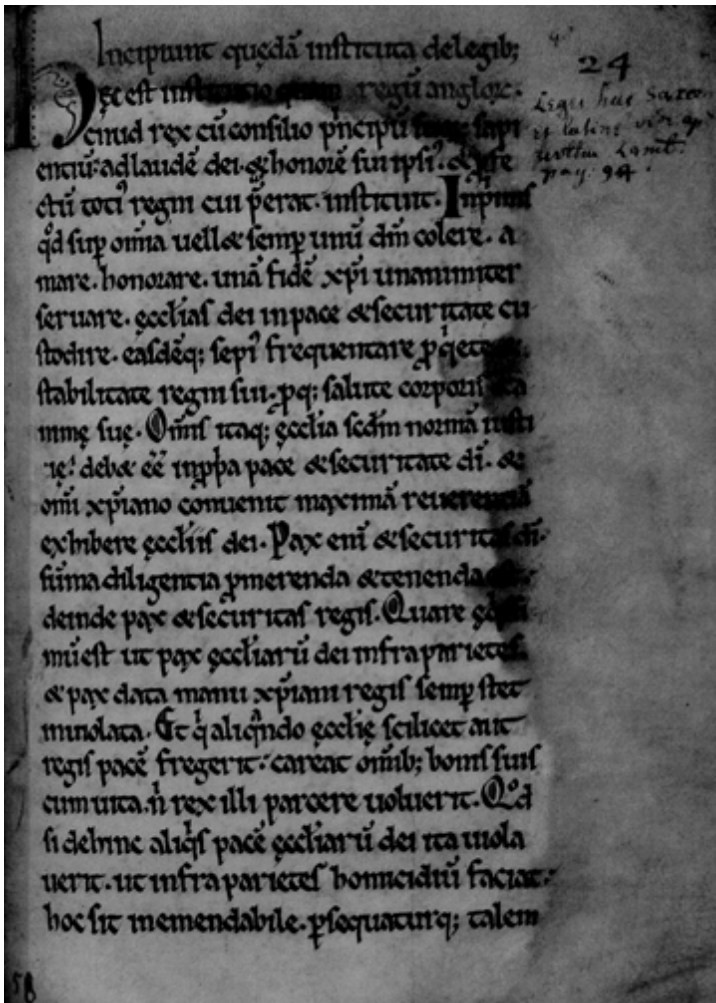 Incipiunt quędā instituta de legib;
Hęc est institutio regū anglorꝝ.
Cnud rex cū consilio p̄ncipū sapi
entiū. ad laudē dei. & honorē sui ipsiꝰ. & ꝓfe
ctū totiꝰ regni cui p̄erat. instituit. Inp̄mis
qd̄ suꝑ om̄ia uellæ semꝑ unū dm̄ colere. a
mare. honorare. unā fidē xp̄i unanimiter
seruare. ęccl̄ias dei in pace & securitate cu
stodire. easdēq; sepiꝰ frequentare ꝓ
stabilitate regni sui. ꝓq; salute corporis
nimę suę. Om̄is itaq; ęccl̄ia scdm̄ normā iusti
tię. debæ eē̄ in ꝓp̄a pace & securitate dī. &
om̄i xp̄iano conuenit maximā reuerenciā
exhibere ęccl̄iis dei. Pax enī & securitas dī.
sūma diligentia ꝓmerenda & tenenda
deinde pax & securitas regis. Quare
mū est ut pax ęccl̄iarū dei infra parietes.
& pax data manu xp̄iani regis semꝑ stet
inuiolata. Et q̄ aliqn̄do ęccl̄ię scilicet aut
regis pacē fregerit. careat om̄ib; bonis suis
cum uita. n̄ rex illi parcere uoluerit. Qd̄
si dehinc aliq̄s pacē ęccl̄iarū dei ita uiola
uerit. ut infra parietes homicidiū faciat.
hoc sit inemendabile. ꝑsequaturq; talem
24
Leges has Saxon
et latine
Lamb.
pag. 94.
58